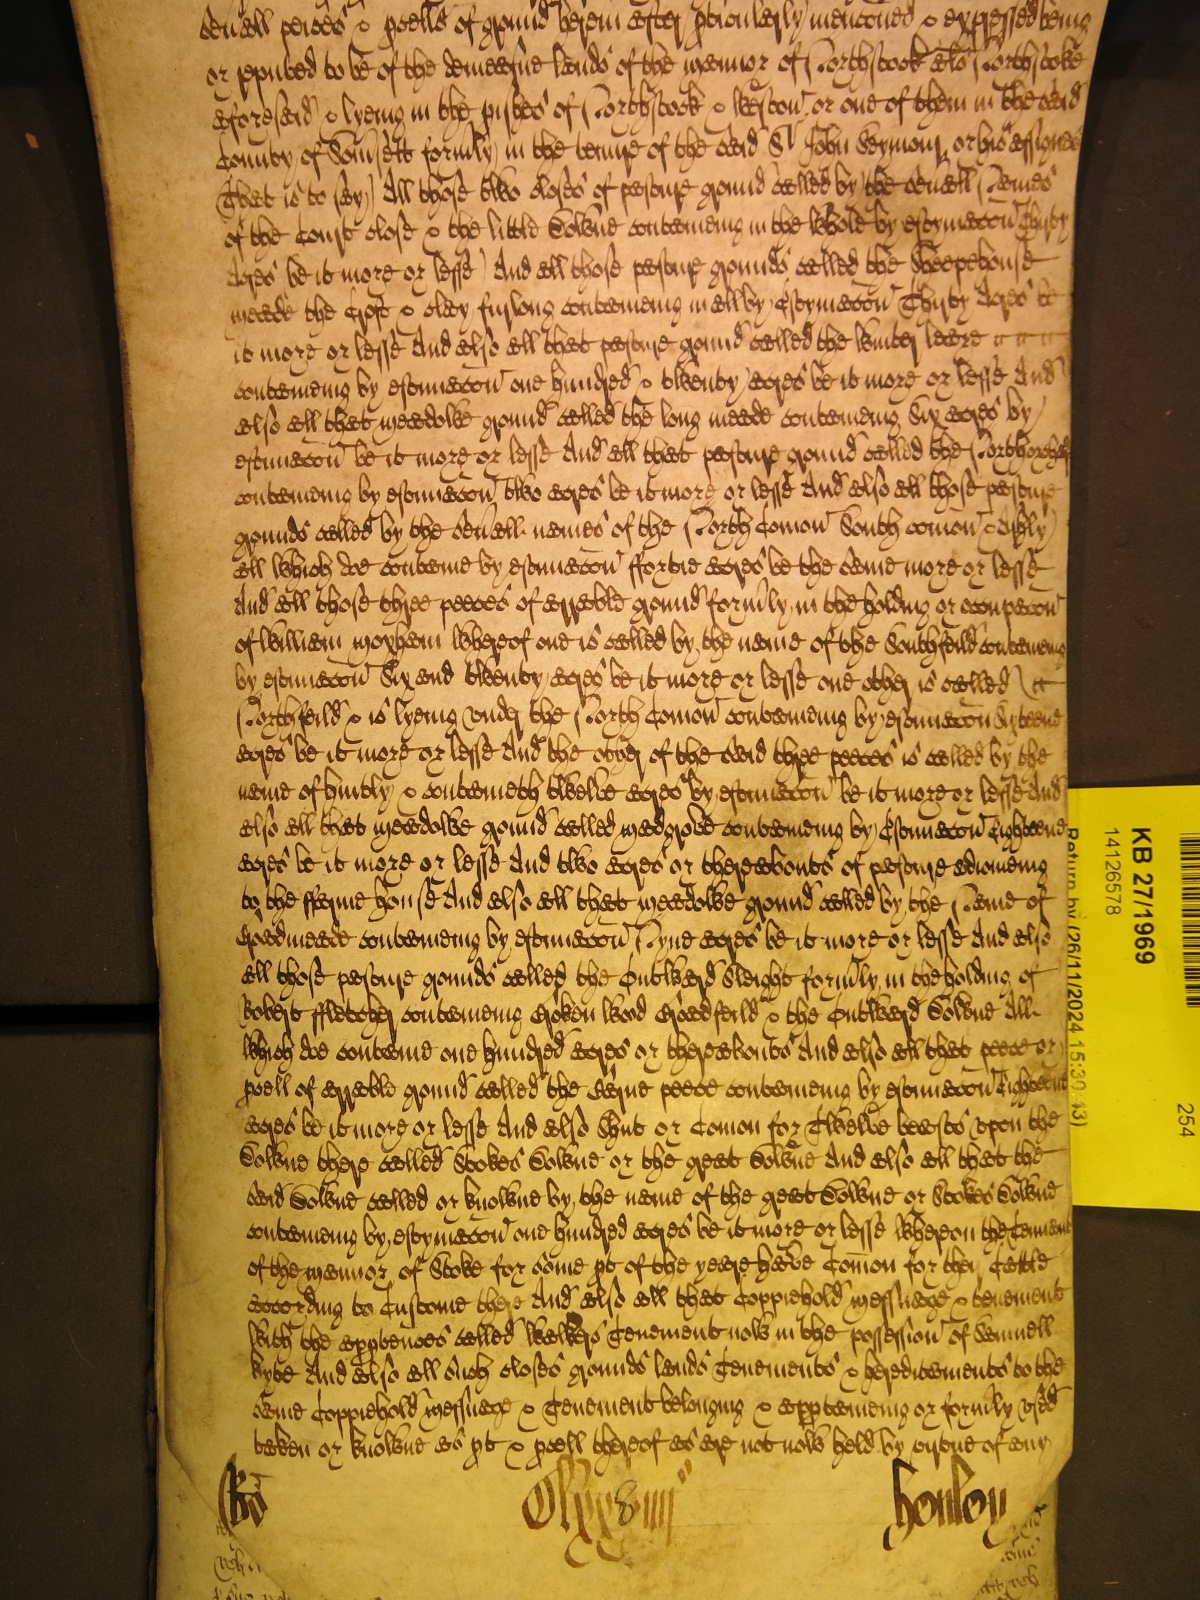 seu'all peices & p'cells of ground herein after p'ticulerly menconed & expressed being
or reputed to be of the demeasne lands of the mannor of Northstock als Northstoke
aforesaid & lyeing in the p'ishes of Northstock & Weston or one of them in the said
County of Som'sett form'ly in the tenure of the said Sr John Seymour or his assignes
That is to say All those two closes of pasture ground called by the seu'all Names
of the Court close & the little Downe conteineing in the whole by estimacon Thirty
Acres be it more or lesse And all those pasture grounds called the Sheepehouse
meade the Croft & furlong conteineing in all by Estymacon Thirty Acres be
it more or lesse And also all that pasture ground called the Winter leaze
conteineing by estimacon one hundred & twenty acres be it more or lesse And
also all that meadowe ground called the long meade conteineing Six acres by
estimacon be it more or lesse And all that pasture ground called the
conteineing by estimacon two acres be it more or lesse And also all those pasture
grounds called by the seu'all names of the North Comon South comon &
all which doe conteine by estimacon ffortie acres be the same more or lesse
And all those three peeces of arrable ground form'ly in the holding or occupacon
of William Moxham whereof one is called by the name of the Southfeild conteineing
by estimacon Six and twenty acres be it more or lesse one other is called
Northfeild & is lyeing vnder the North Comon conteineing by estimacon Sixteene
acres be it more or lesse And the other of the said three peeces is called by the
name of & conteineth twelve acres by estimacon be it more or lesse And
also all that meadowe ground called conteineing by Estimacon Eighteene
acres be it more or lesse And two acres or thereabouts of pasture adioineing
to the fferme house And also all that meadowe ground called by the Name of
Broadmeade conteineing by estimacon Nyne acres be it more or lesse And also
all those pasture grounds called the Outward Sleight form'ly in the holding of
Robert ffletcher conteineing Broadfeild & the Outward Downe All
which doe conteine one hundred acres or thereabouts And also all that peece or
p'cell of arrable ground called the peece conteineing by estimacon Eighteene
acres be it more or lesse And also Shut or Comon for Twelve beasts vpon the
Downe there called Stokes Downe or the great Downe And also all that the
said Downe called or knowne by the name of the great Downe or Stokes Downe
conteineing by estymacon one hundred acres be it more or lesse whereon the Tennants
of the mannor of Stoke for some p't of the yeare have Comon for their Cattle
according to Custome there And also all that Coppiehold Messuage & tenement
with the app'tences called Walkers Tenement now in the possession of Samuell
Byte And also all such closes grounds lands Tenements & hereditaments to the
same Coppiehold Messuage & Tenement belonging & apperteineing or form'ly vsed
taken or knowne as p't & p'cell thereof as are not now held by virtue of any
Ro
Clxxviiij
KB 27/1969
14126578
Return by (26/11/2024 15:30:43)
254